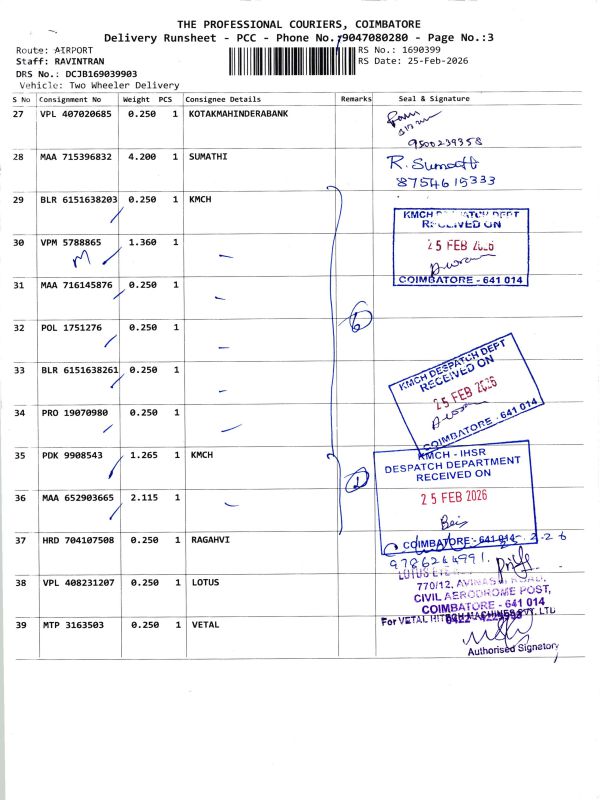 THE PROFESSIONAL COURIERS, COIMBATORE
Delivery Runsheet - PCC - Phone No.:9047080280 - Page No.:3
Route: AIRPORT
RS No.: 1690399
Staff: RAVINTRAN
RS Date: 25-Feb-2026
DRS No.: DCJB169039903
Vehicle: Two Wheeler Delivery
S No Consignment No Weight PCS Consignee Details Remarks Seal & Signature
27 VPL 407020685 0.250 1 KOTAKMAHINDERABANK
9500239358
28 MAA 715396832 4.200 1 SUMATHI R. Sumathi
8754615333
29 BLR 6151638203 0.250 1 KMCH
KMCH DESPATCH DEPT
RECEIVED ON
30 VPM 5788865 1.360 1 25 FEB 2026
M
31 MAA 716145876 0.250 1 COIMBATORE - 641 014
32 POL 1751276 0.250 1
6
33 BLR 6151638261 0.250 1
KMCH DESPATCH DEPT
RECEIVED ON
25 FEB 2026
34 PRO 19070980 0.250 1
COIMBATORE - 641 014
35 PDK 9908543 1.265 1 KMCH
KMCH - IHSR
DESPATCH DEPARTMENT
RECEIVED ON
2
36 MAA 652903665 2.115 1 25 FEB 2026
37 HRD 704107508 0.250 1 RAGAHVI
COIMBATORE - 641 014
9786264991.
38 VPL 408231207 0.250 1 LOTUS
770/12, AVINASI ROAD,
CIVIL AERODROME POST,
COIMBATORE - 641 014
39 MTP 3163503 0.250 1 VETAL
For VETAL HITECH MACHINES PVT. LTD
Authorised Signatory